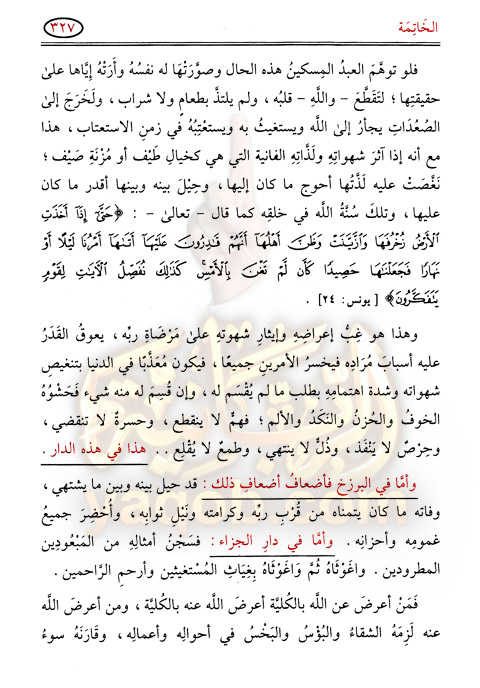 الخَاتِمَة
٣٢٧
فلو توهَّمَ العبدُ المِسكينُ هذه الحال وصوَّرَتْهَا له نفسُهُ وأَرَتْهُ إيَّاها علىٰ
حقيقتِها ؛ لتَقَطَّعَ – واللَّهِ – قلبُه ، ولم يلتذَّ بطعامٍ ولا شراب ، ولَخَرَجَ إلىٰ
الصُّعُدَاتِ يجأرُ إلىٰ اللَّه ويستغيثُ به ويستعْتِبُهُ في زمنِ الاستعتاب ، هذا
مع أنه إذا آثرَ شهواتِه ولَذَّاتِه الفانية التي هي كخيالِ طَيْفٍ أو مُزْنَةِ صَيْف ؛
نَغَّصَتْ عليه لَذَّتُها أحوج ما كان إليها ، وحِيْلَ بينه وبينها أقدر ما كان
عليها ، وتلك سُنَّةُ اللَّه في خلقِه كما قال – تعالىٰ – : ﴿حَتَّىٰٓ إِذَآ أَخَذَتِ
ٱلْأَرْضُ زُخْرُفَهَا وَٱزَّيَّنَتْ وَظَنَّ أَهْلُهَآ أَنَّهُمْ قَٰدِرُونَ عَلَيْهَآ أَتَىٰهَآ أَمْرُنَا لَيْلًا أَوْ
نَهَارًا فَجَعَلْنَٰهَا حَصِيدًا كَأَن لَّمْ تَغْنَ بِٱلْأَمْسِ كَذَٰلِكَ نُفَصِّلُ ٱلْءَايَٰتِ لِقَوْمٍ
يَتَفَكَّرُونَ﴾ [ يونس: ٢٤] .
وهذا هو غِبُّ إعراضِهِ وإيثارِ شهوتِه علىٰ مَرْضَاةِ ربِّه ، يعوقُ القَدَرُ
عليه أسبابَ مُرَادِه فيخسرُ الأمرينِ جميعًا ، فيكون مُعَذَّبًا في الدنيا بتنغيصِ
شهواتِه وشدة اهتمامِه بطلب ما لم يُقْسَم له ، وإن قُسِمَ له منه شيء فَحَشْوُهُ
الخوفُ والحُزنُ والنَّكَدُ والألم ؛ فهمٌّ لا ينقطع ، وحسرةٌ لا تنقضي ،
وحِرْصٌ لا يَنْفَذ ، وذُلٌّ لا ينتهي ، وطمعٌ لا يُقْلِع .. هذا في هذه الدار .
وأمَّا في البرزخ فأضعافُ أضعافِ ذلك : قد حيل بينه وبين ما يشتهي ،
وفاته ما كان يتمناه من قُرْبِ ربِّه وكرامتِه ونَيْلِ ثوابِه ، وأُحْضِرَ جميعُ
غمومِه وأحزانِه . وأمَّا في دارِ الجزاء : فسَجْنُ أمثالِهِ من المَبْعُودِين
المطرودين . واغوْثَاهُ ثُمَّ وَاغَوْثَاهُ بِغِيَاثِ المُسْتَغيثين وأرحمِ الرَّاحمين .
فَمَنْ أعرضَ عن اللَّه بالكُليَّة أعرضَ اللَّه عنه بالكُليَّة ، ومن أعرضَ اللَّه
عنه لَزِمَهُ الشقاءُ والبُؤْسُ والبَخْسُ في أحوالِه وأعمالِه ، وقَارَنَهُ سوءُ